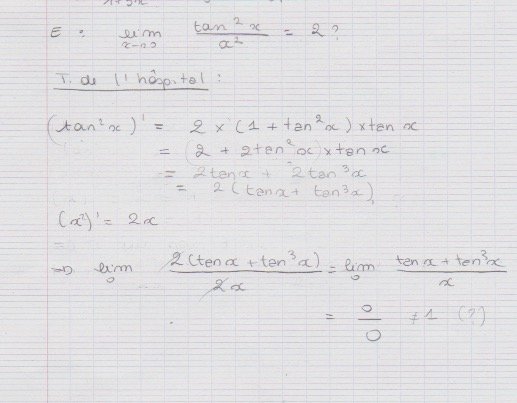 E : lim x→0 tan²x / x² = 2 ?
T. de l'hôspital :
(tan²x)' = 2 × (1 + tan²x) × tan x
= (2 + 2tan²x) × tan x
= 2tan x + 2tan³x
= 2(tan x + tan³x)
(x²)' = 2x
=> lim 0 2(tan x + tan³x) / 2x = lim 0 tan x + tan³x / x
= 0 / 0 ≠ 1 (?)